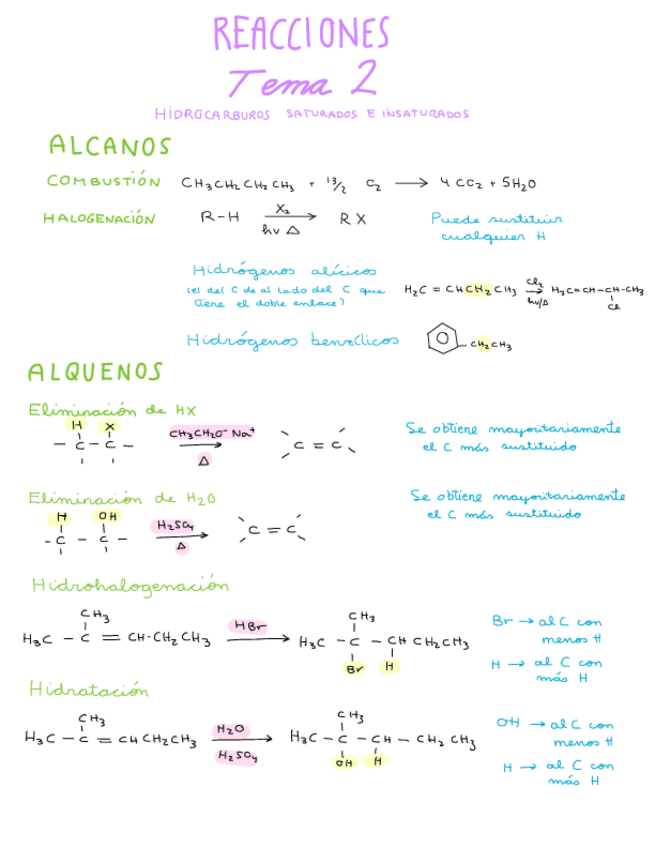 REACCIONES
Tema 2
HIDROCARBUROS SATURADOS E INSATURADOS
ALCANOS
COMBUSTIÓN CH3CH2CH2CH3 + 13/2 O2 → 4 CO2 + 5H2O
HALOGENACIÓN R-H X2 hν Δ → RX Puede sustituir
cualquier H
Hidrógenos alícicos
(el del C de al lado del C que
tiene el doble enlace)
H2C = CHCH2CH3 Cl2 hν/Δ → H2C=CH-CH-CH3
Cl
Hidrógenos bencílicos CH2CH3
ALQUENOS
Eliminación de HX
H X
- C - C - CH3CH2O- Na+ Δ → C = C
Se obtiene mayoritariamente
el C más sustituido
Eliminación de H2O
H OH
- C - C - H2SO4 Δ → C = C
Se obtiene mayoritariamente
el C más sustituido
Hidrohalogenación
CH3 CH3
H3C - C = CH-CH2CH3 HBr → H3C - C - CH CH2CH3
Br H
Br → al C con
menos H
H → al C con
más H
Hidratación
CH3 CH3
H3C - C = CHCH2CH3 H2O H2SO4 → H3C - C - CH - CH2 CH3
OH H
OH → al C con
menos H
H → al C con
más H